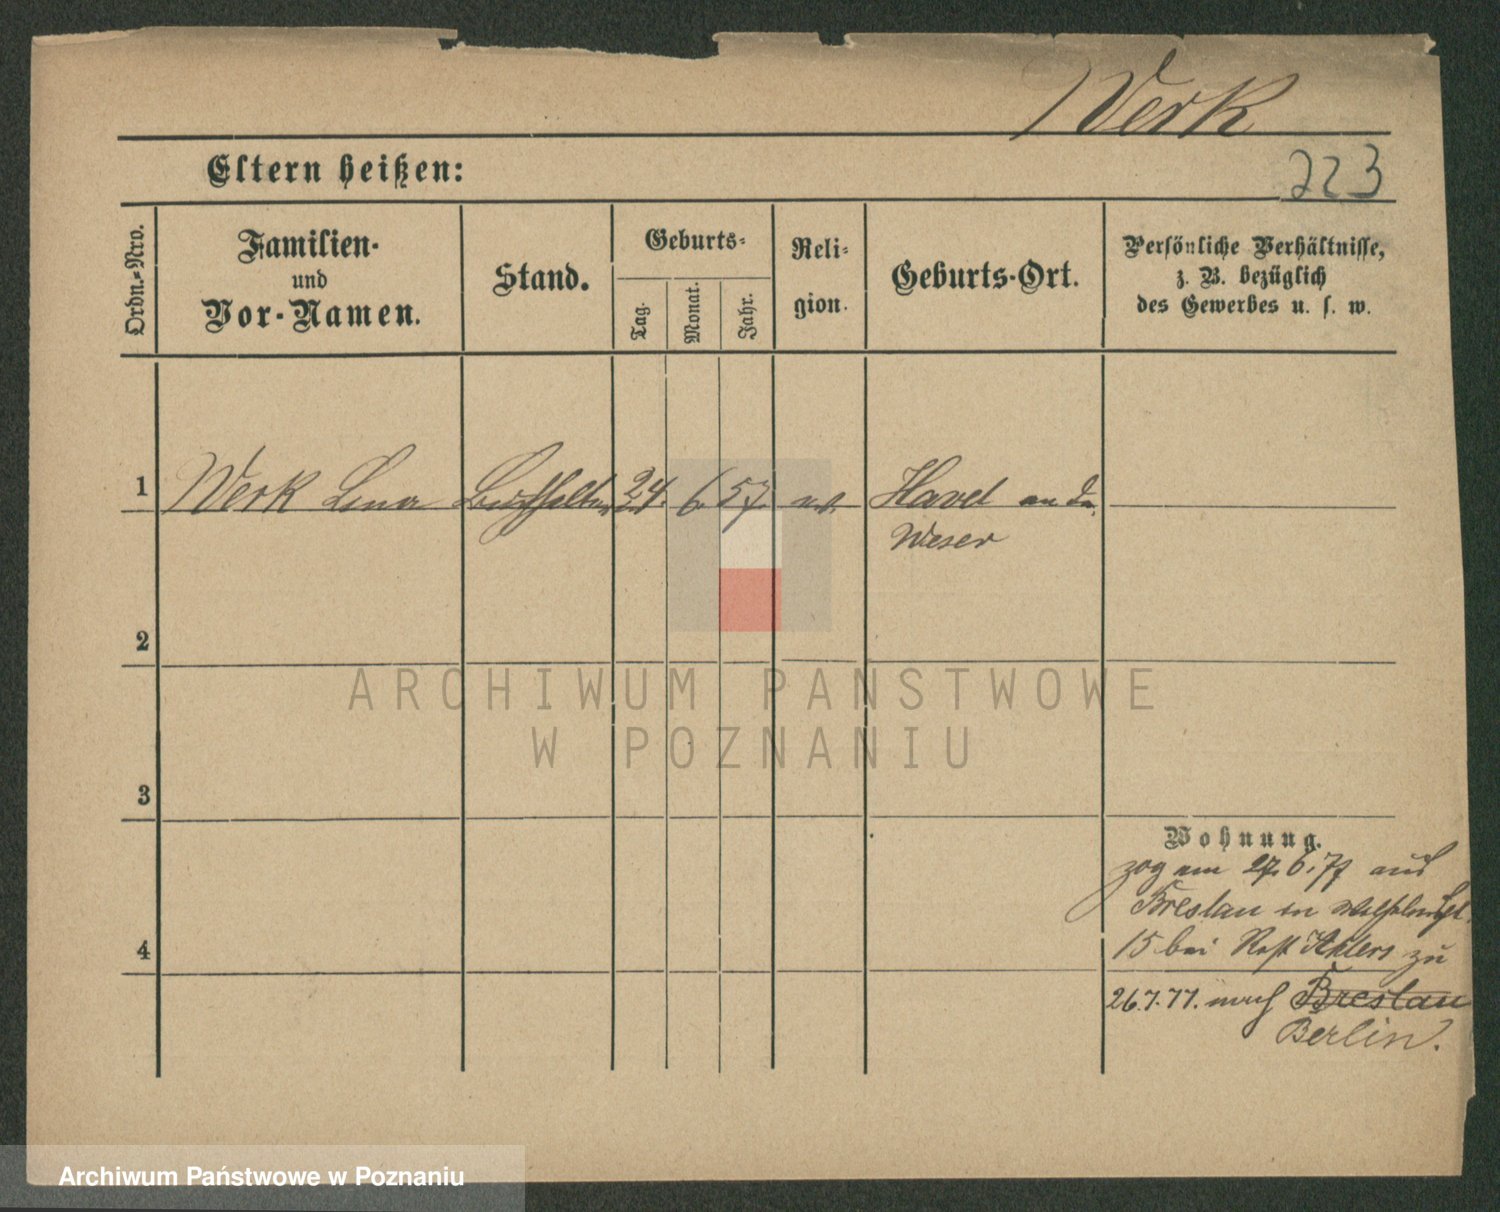 Werk
Eltern heißen:
223
Ordn.-Nro.
Familien-
und
Vor-Namen.
Stand.
Geburts-
Tag.
Monat.
Jahr.
Reli-
gion.
Geburts-Ort.
Persönliche Verhältnisse,
z. B. bezüglich
des Gewerbes u. s. w.
1 Werk Lina 24. 6. 57. Havel an der
Weser
2
ARCHIWUM PAŃSTWOWE
W POZNANIU
3
Wohnung.
zog am 27.6.77 aus
Breslau in
15 bei Ahlers zu
4
26.7.77. nach Breslau
Berlin.
Archiwum Państwowe w Poznaniu